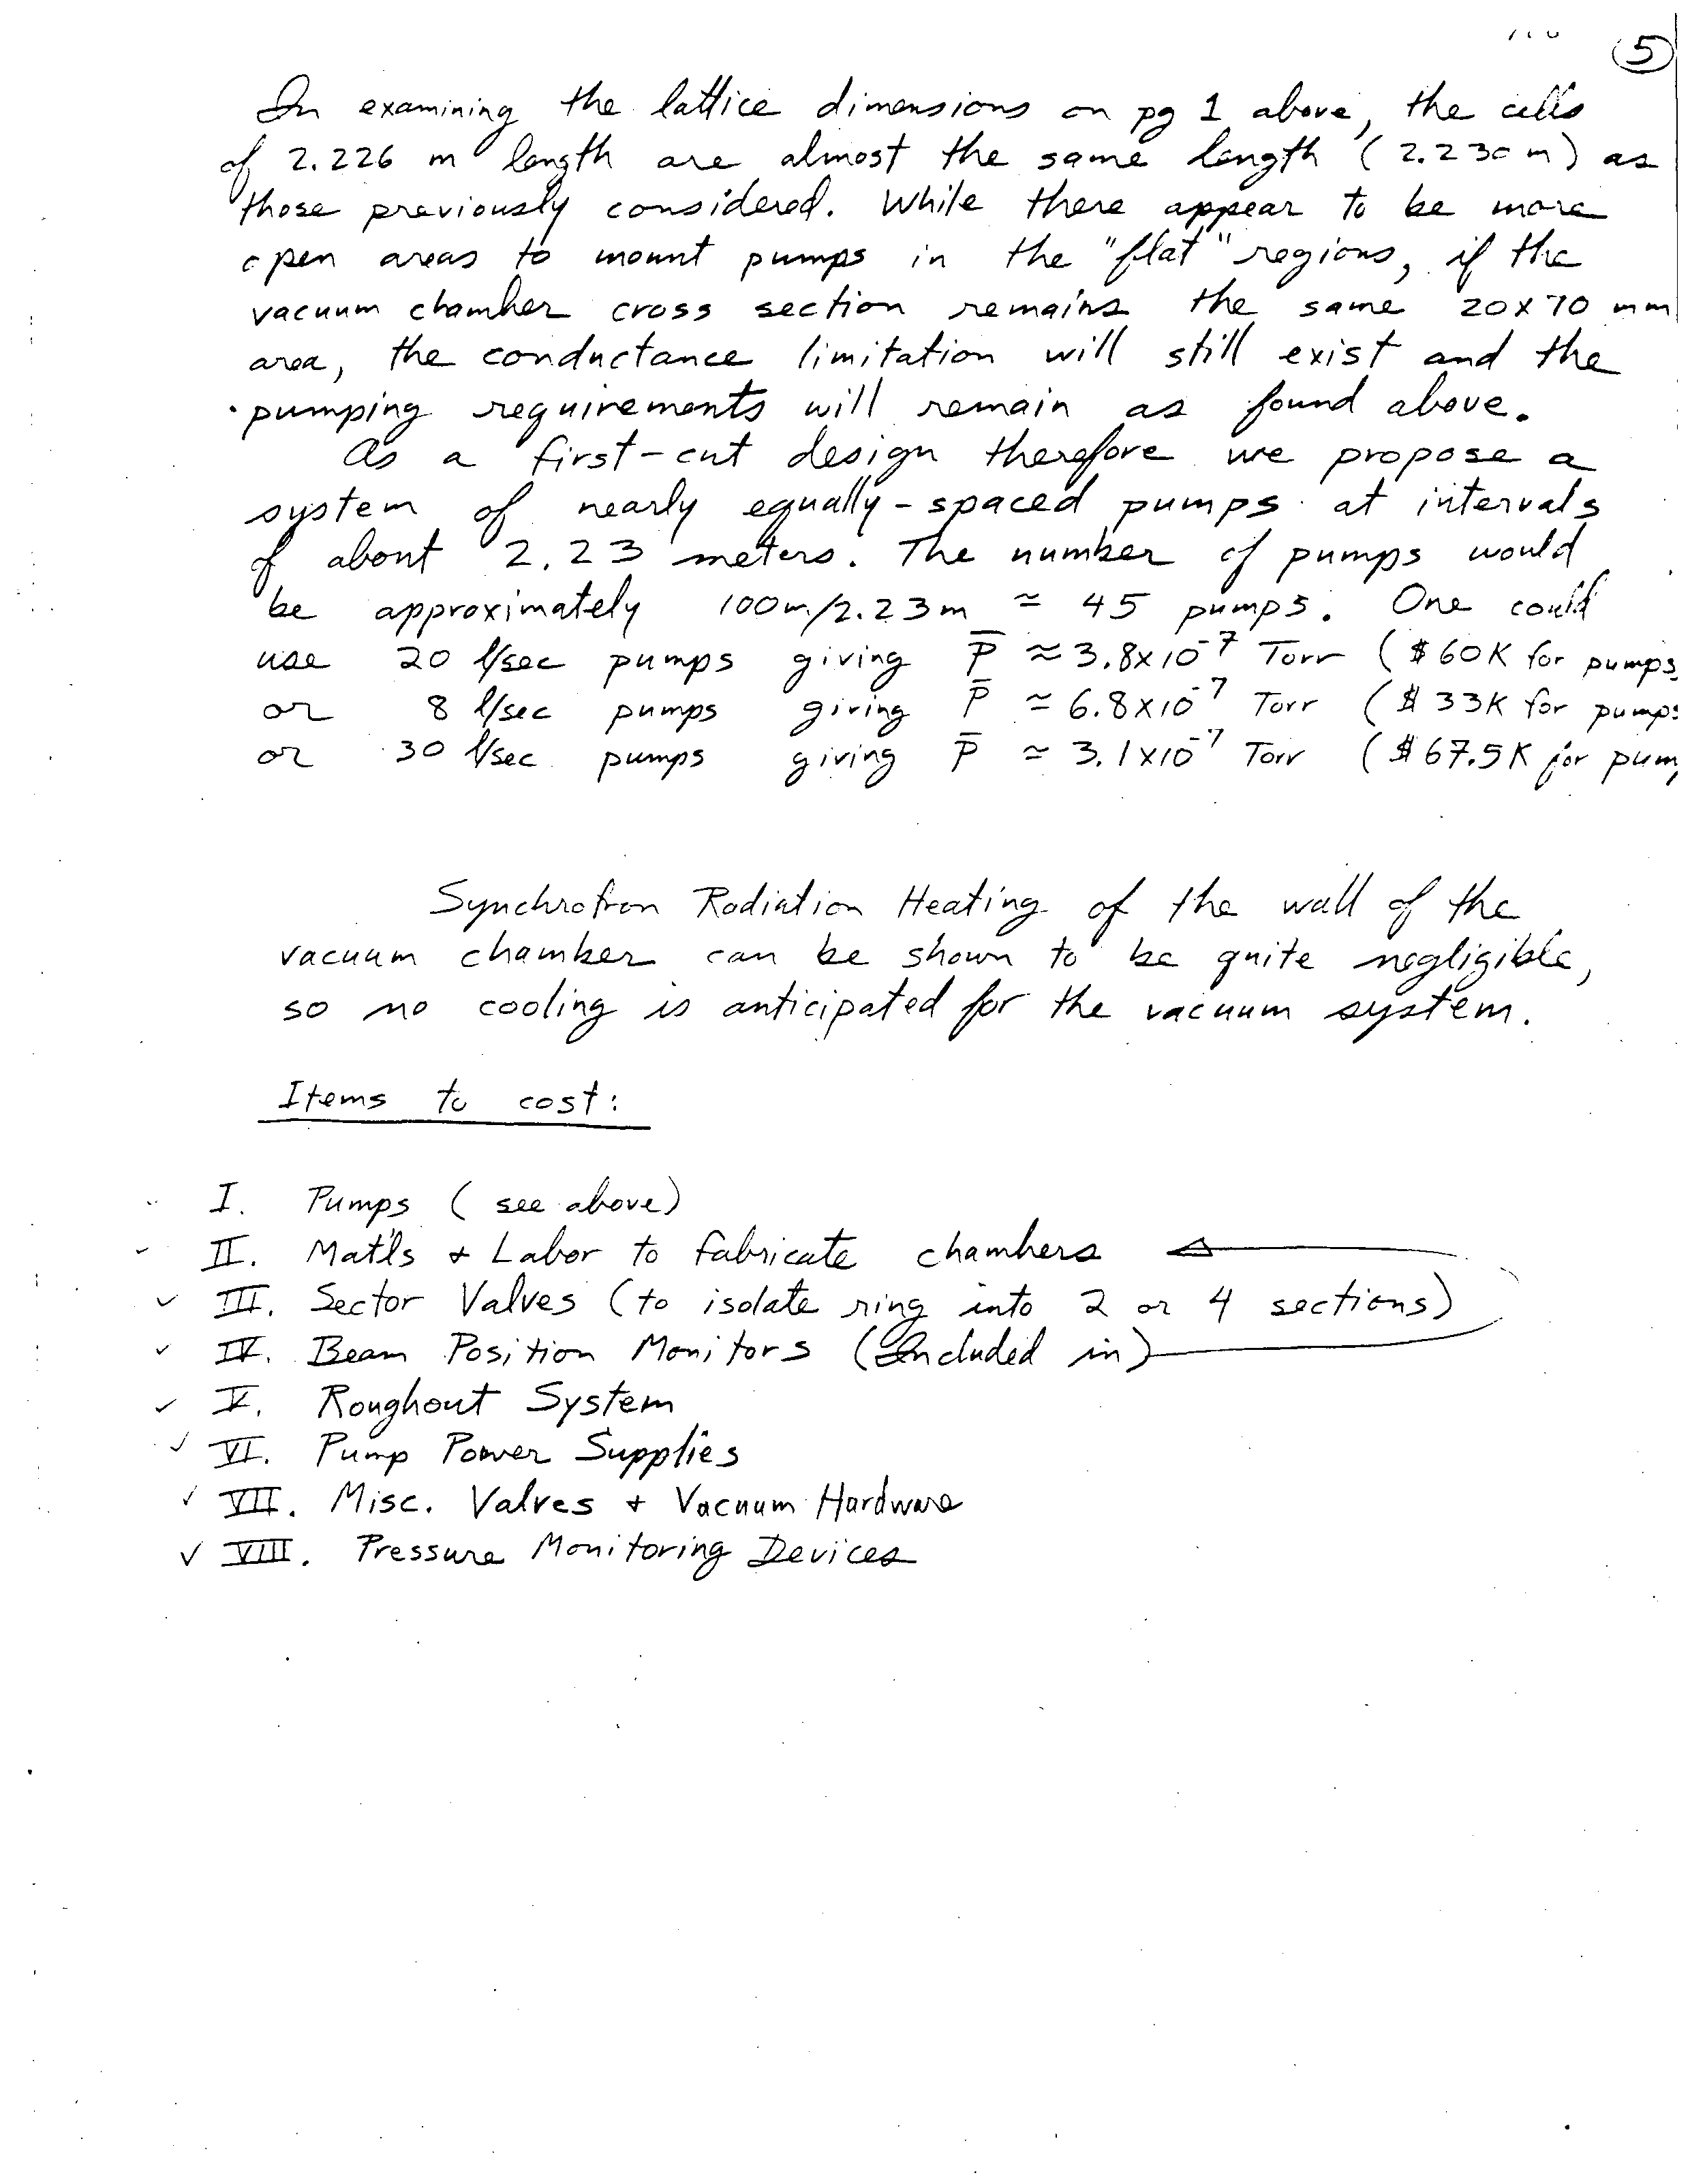 5
In examining the lattice dimensions on pg 1 above, the cells
of 2.226 m length are almost the same length (2.230 m) as
those previously considered. While there appear to be more
open areas to mount pumps in the "flat" regions, if the
vacuum chamber cross section remains the same 20x70 mm
area, the conductance limitation will still exist and the
pumping requirements will remain as found above.
As a first-cut design therefore we propose a
system of nearly equally-spaced pumps at intervals
of about 2.23 meters. The number of pumps would
be approximately 100m/2.23m ≃ 45 pumps. One could
use 20 l/sec pumps giving P̅ ≈ 3.8x10⁻⁷ Torr ($60K for pumps
or 8 l/sec pumps giving P̅ ≃ 6.8x10⁻⁷ Torr ($33K for pumps
or 30 l/sec pumps giving P̅ ≃ 3.1x10⁻⁷ Torr ($67.5K for pum
Synchrotron Radiation Heating of the wall of the
vacuum chamber can be shown to be quite negligible,
so no cooling is anticipated for the vacuum system.
Items to cost:
I. Pumps (see above)
II. Mat'ls + Labor to fabricate chambers
✓ III. Sector Valves (to isolate ring into 2 or 4 sections)
✓ IV. Beam Position Monitors (Included in)
✓ V. Roughout System
✓ VI. Pump Power Supplies
✓ VII. Misc. Valves + Vacuum Hardware
✓ VIII. Pressure Monitoring Devices